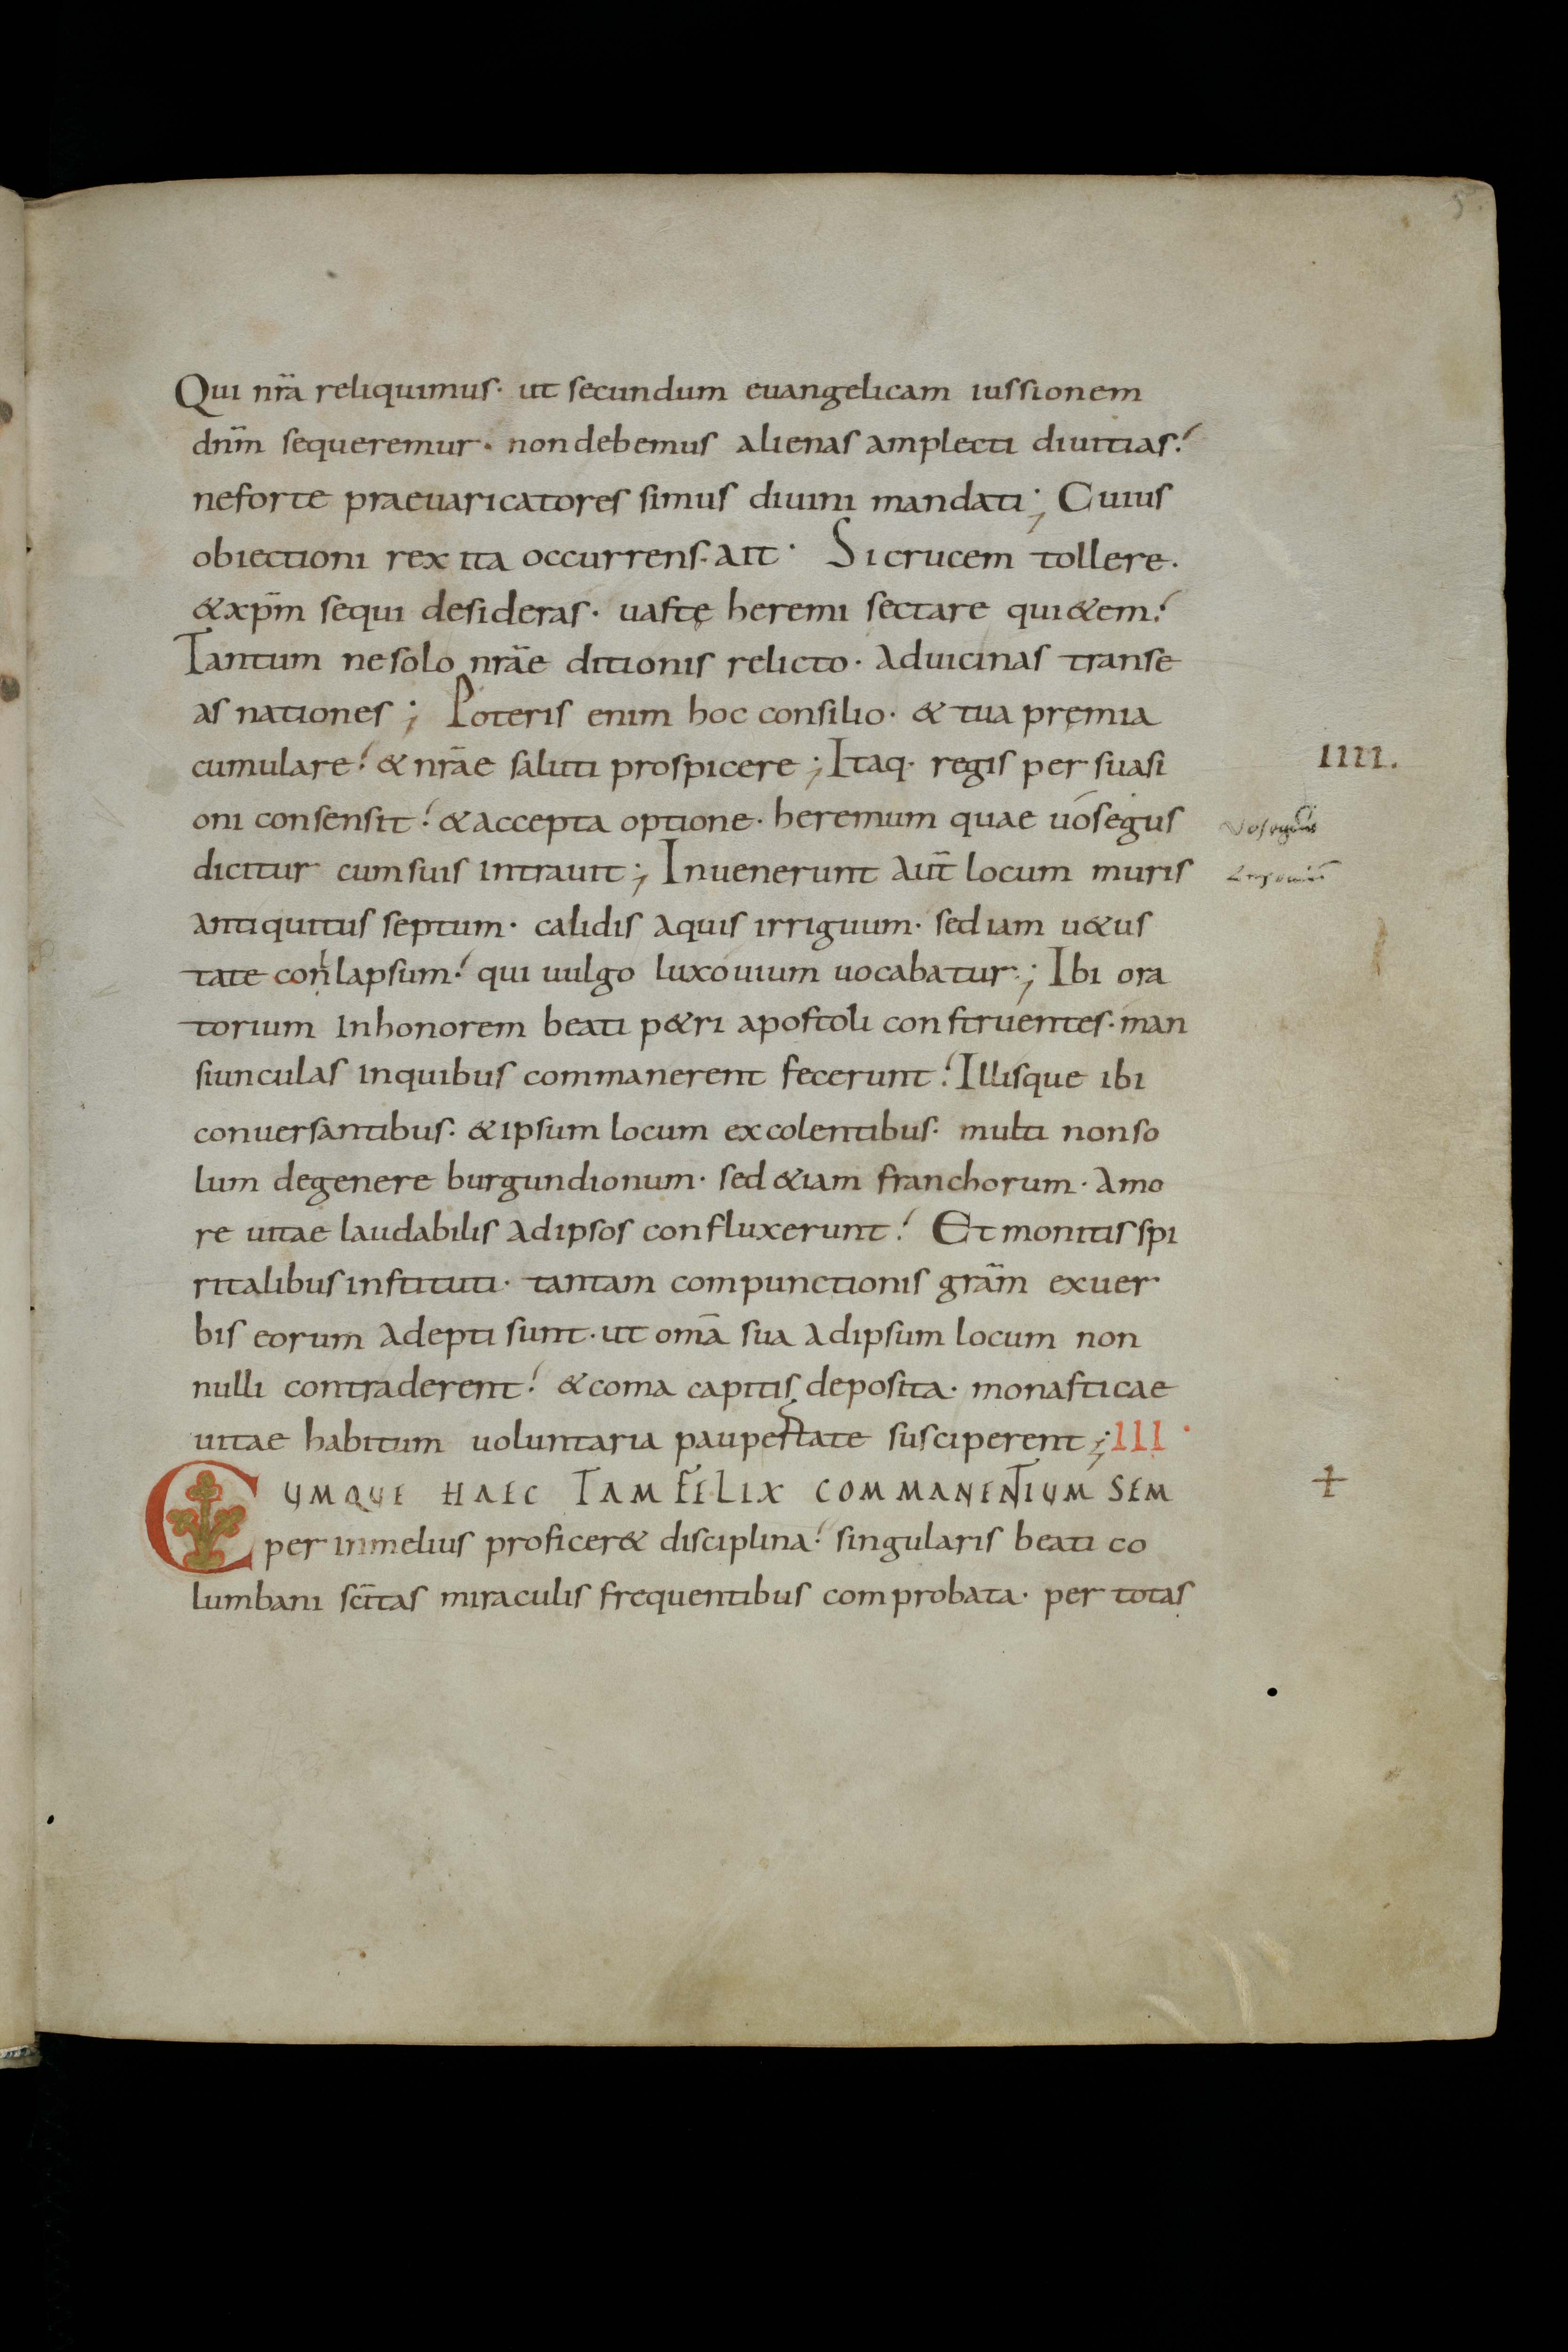 5
Qui nr̃a reliquimus· ut secundum euangelicam iussionem
dnm̃ sequeremur· non debemus alienas amplecti diuitias!
ne forte praeuaricatores simus diuini mandati; Cuius
obiectioni rex ita occurrens· ait· Si crucem tollere·
& xpm̃ sequi desideras· uastę heremi sectare qui&em!
Tantum ne solo nrãe ditionis relicto· ad uicinas transe
as nationes; Poteris enim hoc consilio· & tua pręmia
cumulare! & nrãe saluti prospicere; Itaq· regis persuasi
IIII.
oni consensit! & accepta optione· heremum quae uósegus
Vosegus
dicitur cum suis intrauit; Inuenerunt aut̃ locum muris
antiquitus septum· calidis aquis irriguum· sed iam u&us
tate conlapsum! qui uulgo luxouium uocabatur; Ibi ora
torium in honorem beati p&ri apostoli construentes· man
siunculas in quibus commanerent fecerunt! Illisque ibi
conuersantibus· & ipsum locum excolentibus· multi non so
lum de genere burgundionum· sed &iam franchorum· amo
re uitae laudabilis ad ipsos confluxerunt! Et monitis spi
ritalibus instituti· tantam compunctionis grãm ex uer
bis eorum adepti sunt· ut omã sua ad ipsum locum non
nulli contraderent! & coma capitis deposita· monasticae
uitae habitum uoluntaria paupertate susciperent; III·
CUMQUE HAEC TAM FELIX COMMANENTIUM SEM
+
per in melius proficer& disciplina! singularis beati co
lumbani sc̃itas miraculis frequentibus comprobata· per totas